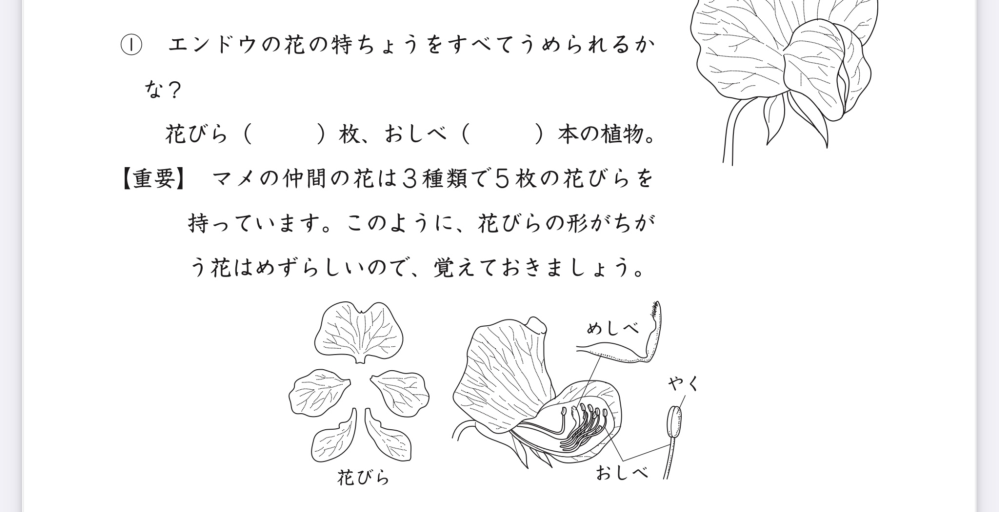 ① エンドウの花の特ちょうをすべてうめられるか
な？
花びら（　　　）枚、おしべ（　　　）本の植物。
【重要】 マメの仲間の花は３種類で５枚の花びらを
持っています。このように、花びらの形がちが
う花はめずらしいので、覚えておきましょう。
めしべ
やく
おしべ
花びら